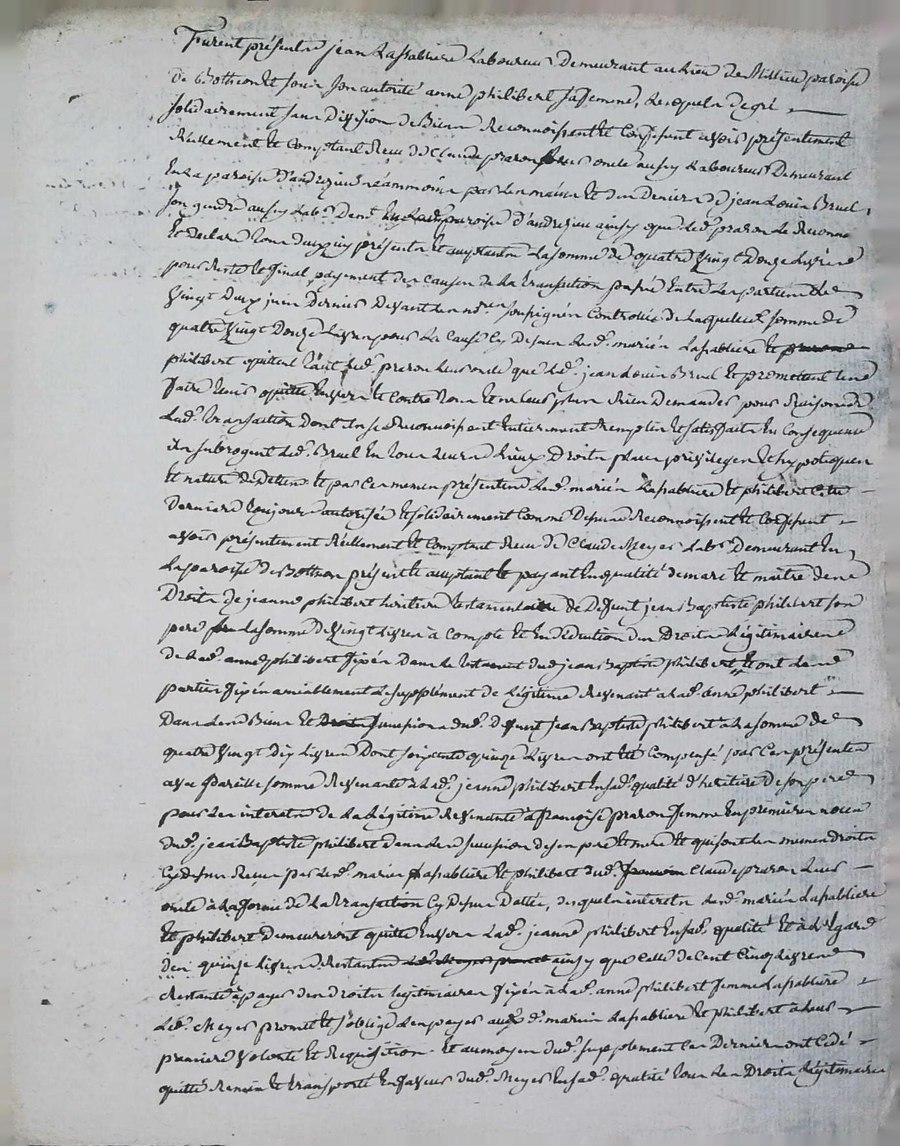 Furent présents jean Lassabliere Laboureur Demeurant au Lieu de Millieu paroisse
de Bothéon et sous son autorité anne philibert sa femme, Lesquels de gré
solidairement sans Division de Biens Reconnoissent et Confessent avoir présentement
Réellement et Comptant Recu de Claude praron leur oncle aussy Laboureur Demeurant
En La paroisse d'andrezieu néammoins par Les mains et des Deniers de jean Louis Bruel
son gendre aussy Lab.r Dem.t En La d. paroisse d'andrezieu ainsy que led. praron Le Reconnoit
et Declare tous deux icy présents et acceptants La somme de quatre Vingt Douze Livres
pour Reste et final payement des Causes de La transaction passée Entre Les parties Le
Vingt Deux juin Dernier Devant Le no.re soussigné Controllée de Laquelle somme de
quatre Vingt Douze Livres pour La Cause Cy Dessus Les d. mariés Lassabliere et
philibert quittent tant led. praron leur oncle que led. jean Louis Bruel et promettent Les
faire tenir quitte Envers et Contre tous et ne Leur plus Rien Demander pour Raison de
Lad. transaction Dont ils se Reconnoissent Entierement Remplis et satisfaits En Consequence
ils subrogent led. Bruel En tous Leurs Lieux Droits places privileges et hypoteques
et nature de Dettes et par Ces memes présentes Lesd. mariés Lassabliere et philibert Cette
Derniere toujours autorisée et solidairement Comme Dessus Reconnoissent et Confessent
avoir présentement Réellement et Comptant Recu de Claude Meyer Lab.r Demeurant En
La paroisse de Bothéon présent et acceptant et payant En qualité de mari et maitre des
Droits de jeanne philibert héritiere testamentaire de Deffunt jean Baptiste philibert son
pere La somme de Vingt Livres à Compte et En Déduction des Droits Légitimaires
de Lad. anne philibert fixés Dans Le testament dud. jean Baptiste philibert et ont Les
parties fixé amiablement Le supplément de Légitime Revenant à Lad. anne philibert
Dans Les Biens et succession dud. deffunt jean Baptiste philibert à La somme de
quatre Vingt Dix Livres Dont soixante quinze Livres ont été Compensé par Ces présentes
avec pareille somme Revenante à Lad. jeanne philibert En sad. qualité d'héritiere de son pere
pour Les interets de La Légitime Revenante à françoise praron femme En premieres noces
dud. jean Baptiste philibert dans Les succession de son pere et mere et qui sont Les memes droits
Cy dessus Recus par Lesd. mariés Lassabliere et philibert dud. Claude praron Leur
oncle à La forme de La transaction Cy Dessus Dattée, desquels interets Lesd. mariés Lassabliere
et philibert Demeureront quitte Envers Lad. jeanne philibert En sad. qualité et à L'Egard
des quinze Livres Restantes ainsy que Celle de Cent Cinq Livres
Restante à payer des droits légitimaires fixés à Lad. anne philibert femme Lassabliere
Led. Meyer promet et s'oblige Les payer auxd. mariés Lassabliere et philibert à Leur
premiere Volonté et Requisition. Et au moyen dud. supplement Ces Derniers ont Cédé
quitté Remis et transporté En faveur dud. Meyer En sad. qualité tous Les Droits Légitimaires